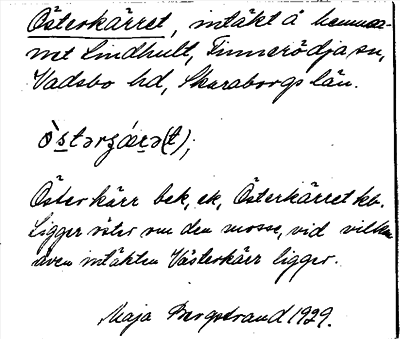 Österkärret, intäkt å hemma-
net Lindhult, Tinnerödja sn,
Vadsbo hd, Skaraborgs län.
Österkärr bek, ek, Österkärret kb.
Ligger öster om den mosse, vid vilken
även intäkten Västerkärr ligger.
Maja Bergstrand 1929.